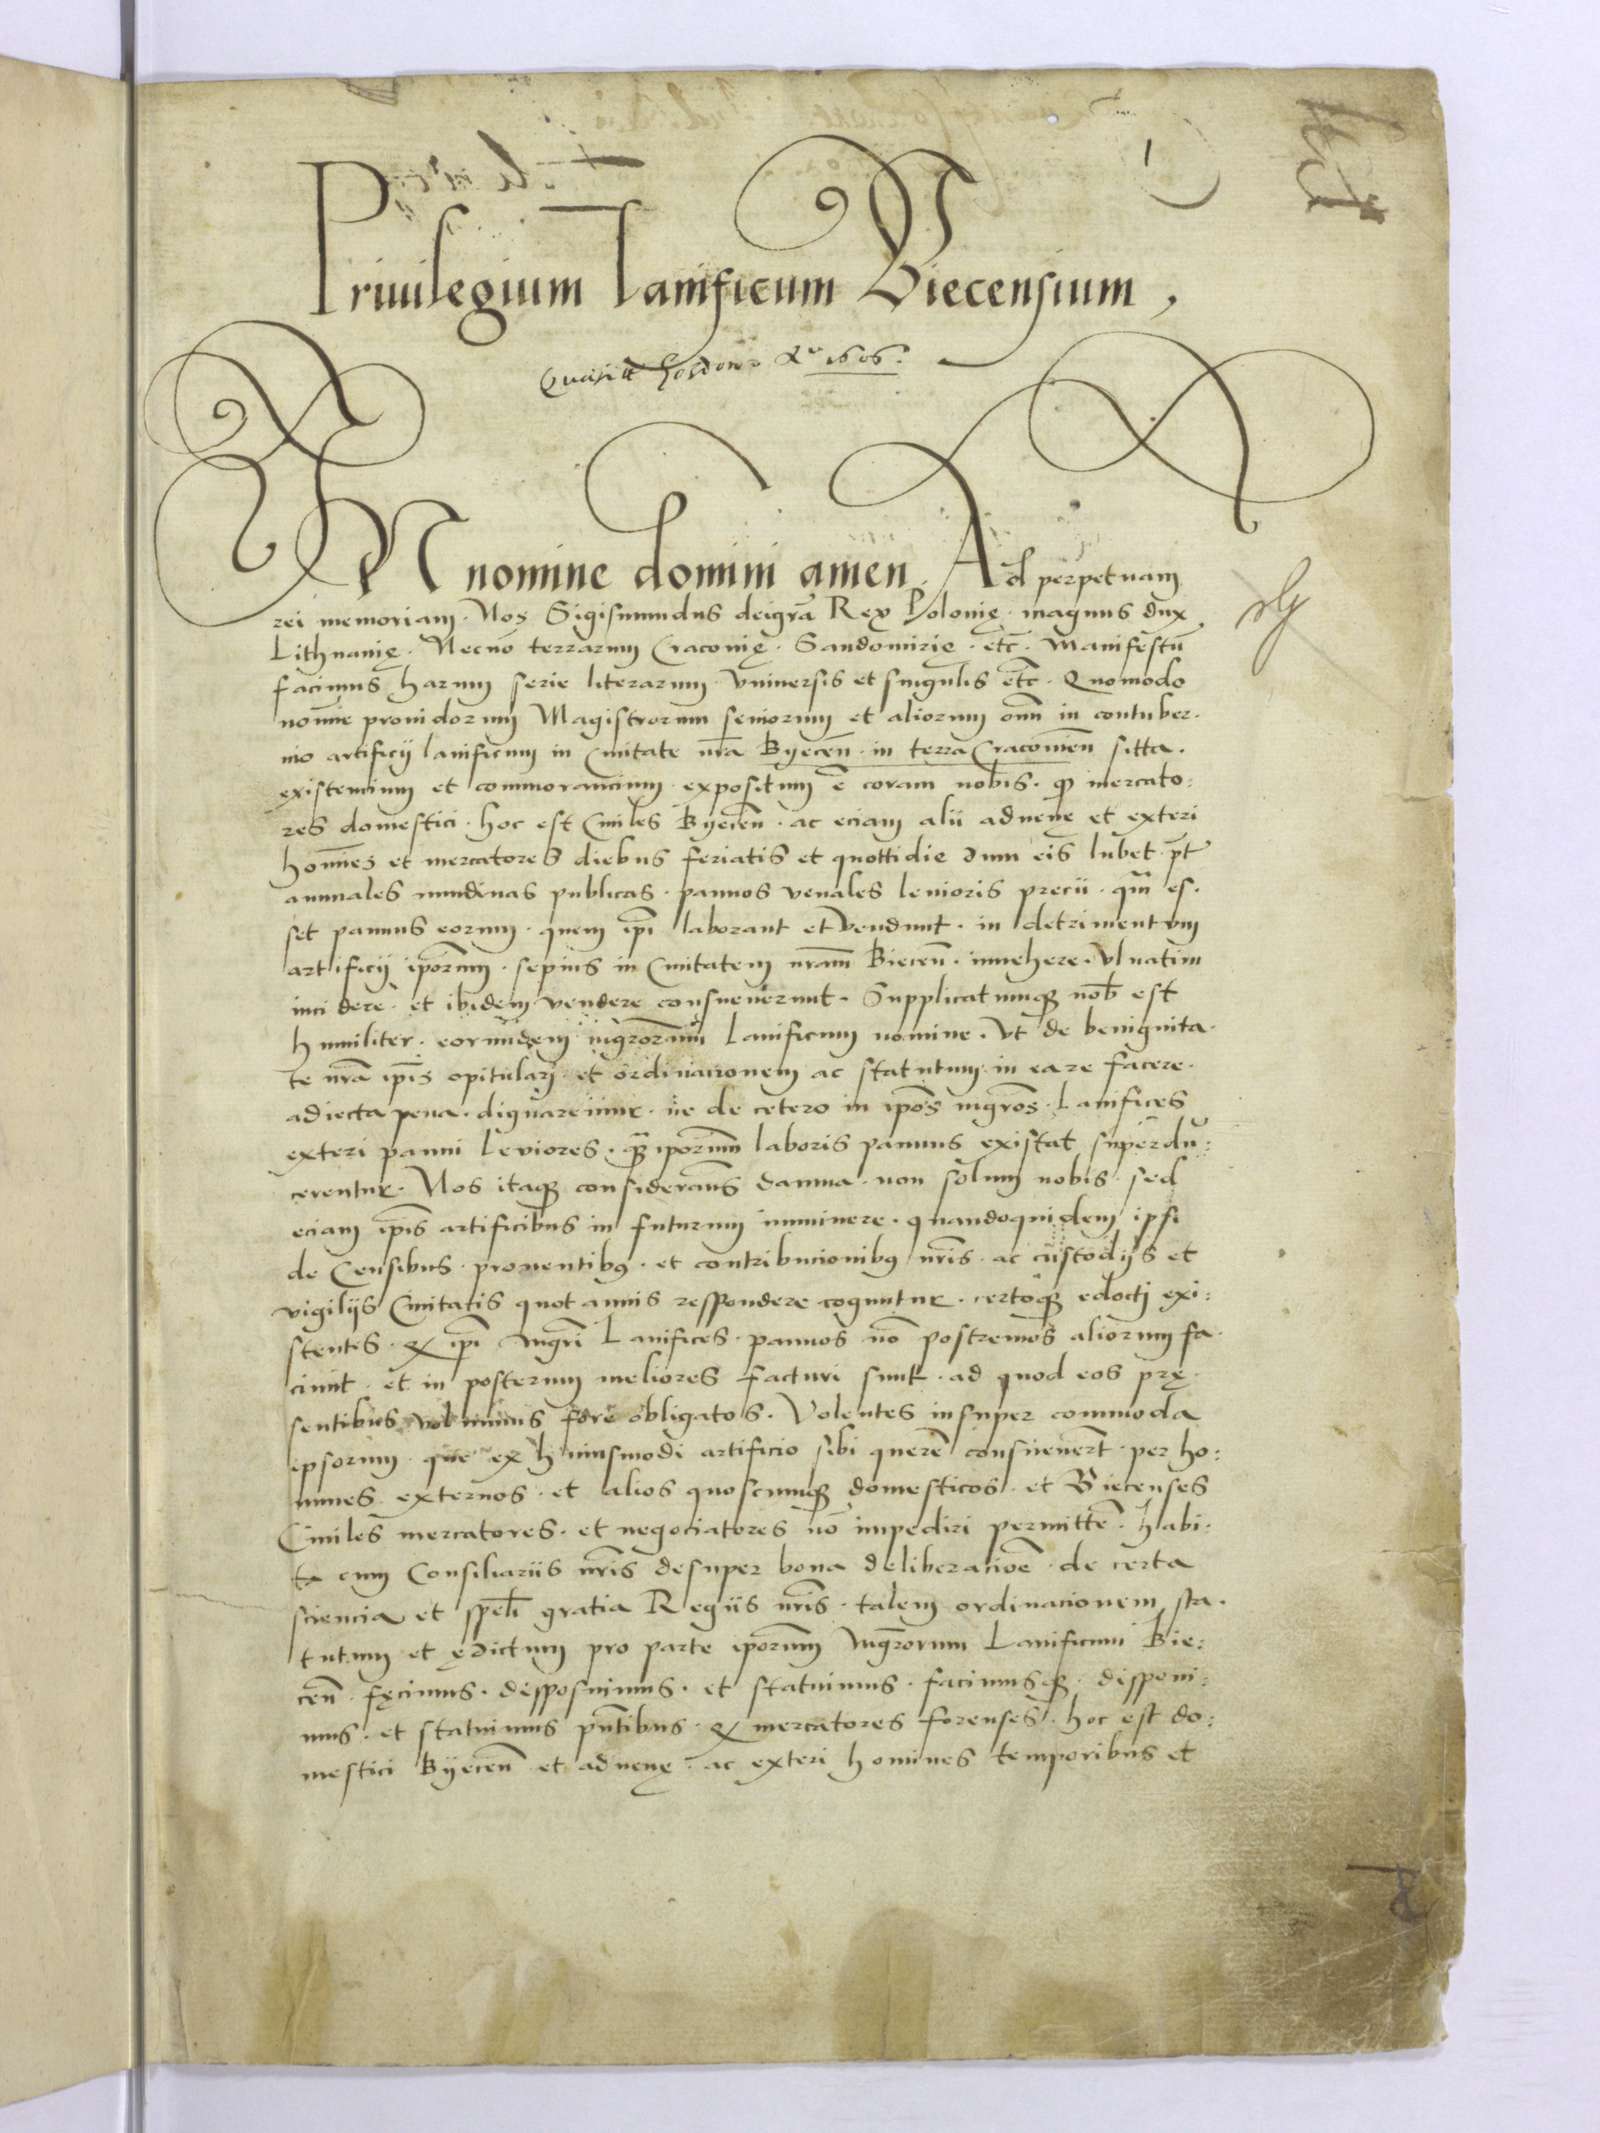 Priuilegium Lanificum Biecensium,
1606.
IN nomine domini amen. Ad perpetuam
rei memoriam. Nos Sigismundus dei grã Rex Polonię. magnus dux
Lithuanię. Necnõ terrarum Craconię. Sandomirię. etc̃. Manifestũ
facimus harum serie literarum. Vniuersis et singulis etc̃. Quomodo
nomĩe prouidorum Magistrorum seniorum et aliorum oñm in contuber.
nio artificij lanificum in Ciuitate nrã Byeceñ. in terra Cracouieñ sitta.
existencium et commorancium. expositum ẽ coram nobis. ꝙ mercato:
res domestici. hoc est Ciuiles Byeceñ. ac eciam alii aduenę et exteri
homĩes et mercatores diebus feriatis et quottidie dum eis lubet. pt̃
annuales nundinas publicas. pannos venales leuioris precii. qm̃ es.
set pannus eorum. quem ip̃i laborant et vendunt. in detrimentum
artificij ip̃orum. sepius in Ciuitatem nram̃ Bieceñ. inuehere. Vlnatim
incidere. et ibidem vendere consueuerunt. Supplicatumqꝫ nob̃ est
humiliter. eorundem mgr̃orum Lanificum nomine. Vt de benignita.
te nrã ip̃is opitulari. et ordinacionem ac statutum in ea re facere.
adiecta pena. dignaremur. ne de cetero in ip̃os mgr̃os. Lanifices
exteri panni leuiores. qꝫ̃ ip̃orum laboris pannus existat superdu:
cerentur. Nos itaqꝫ considerantes damna. non solum nobis. sed
eciam ip̃is artificibus in futurum imminere. quandoquidem ipsi
de Censibus. prouentibꝰ. et contribucionibꝰ nr̃is. ac custodijs et
vigilijs Ciuitatis quot annis respondere coguntur. certoqꝫ edocti exi:
stentes. ꝙ ip̃i mgr̃i Lanifices. pannos nõ postremos aliorum fa.
ciunt. et in posterum meliores facturi sunt. ad quod eos prę.
sentibus volumus fore obligatos. Volentes insuper commoda
ipsorum. que ex huiusmodi artificio sibi querẽ consueuer̃t. per ho:
mines externos. et alios quoscumqꝫ domesticos. et Biecenses
Ciuiles mercatores. et negociatores nõ impediri permittẽ. habi.
ta cum Consiliariis nr̃is desuper bona deliberacioẽ. de certa
sciencia et spel̃i gratia Regiis nr̃is. talem ordinacionem sta.
tutum et ędictum pro parte ip̃orum mgr̃orum Lanificum Bie:
ceñ. fęcimus. disposuimus. et statuimus. facimusqꝫ. disponi:
mus. et statuimus pñtibus. ꝙ mercatores forenses. hoc est do:
mestici Byeceñ et aduenę. ac exteri homines temporibus et